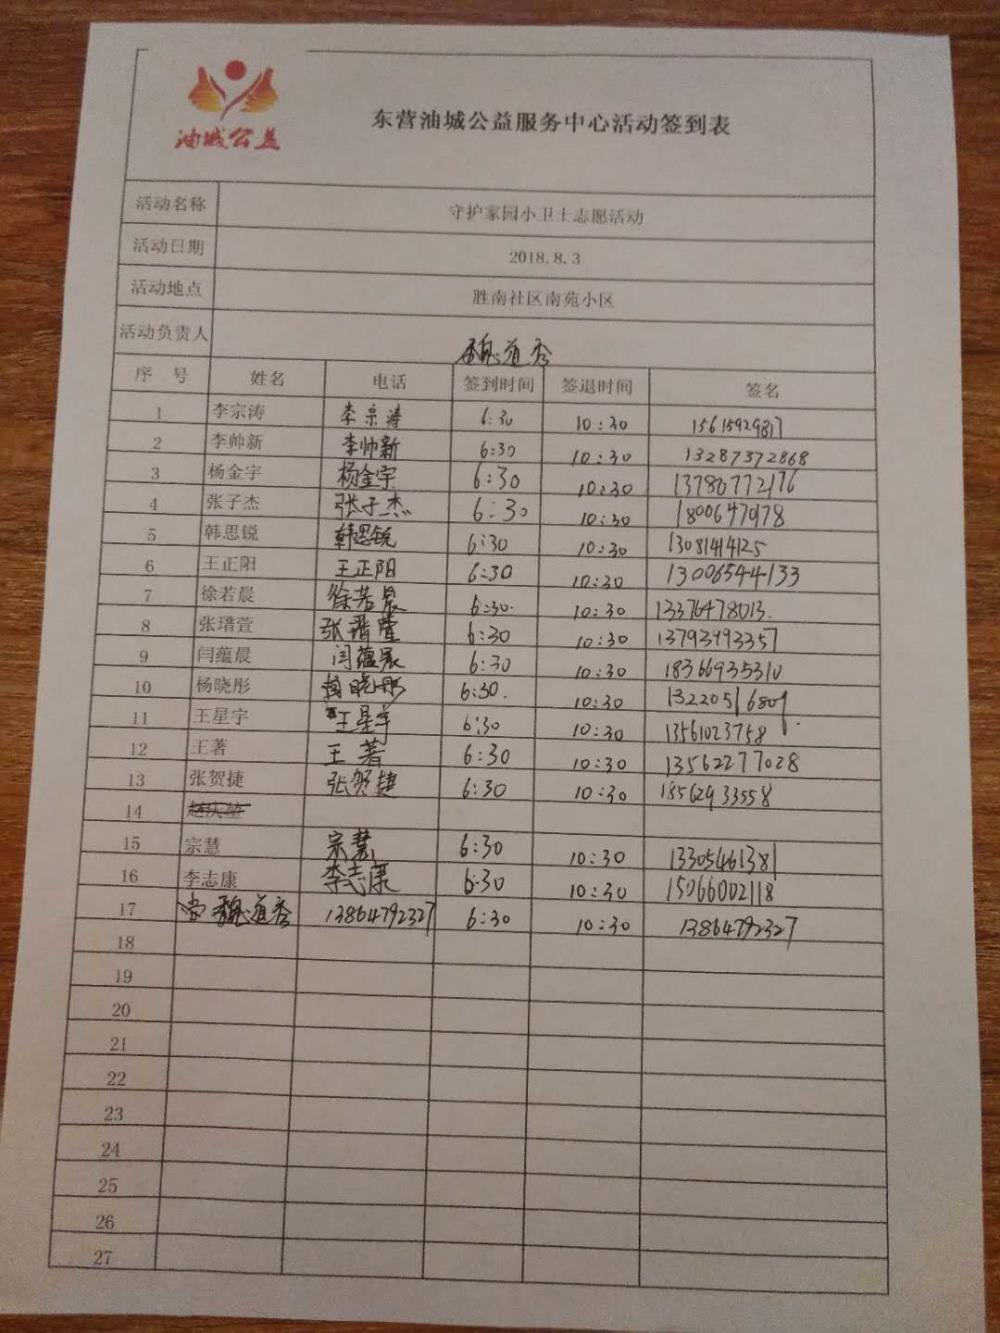 油城公益
东营油城公益服务中心活动签到表
活动名称 守护家园小卫士志愿活动
活动日期 2018.8.3
活动地点 胜南社区南苑小区
活动负责人 魏道秀
序 号 姓名 电话 签到时间 签退时间 签名
1 李宗涛 李宗涛 6:30 10:30 15615929817
2 李帅新 李帅新 6:30 10:30 13287372868
3 杨金宇 杨金宇 6:30 10:30 13780772176
4 张子杰 张子杰 6:30 10:30
5 韩思锐 韩思锐 6:30 10:30 13081414125
6 王正阳 王正阳 6:30 10:30 13006544133
7 徐若晨 徐若晨 6:30. 10:30 13376478013.
8 张瑨萱 张瑨萱 6:30 10:30 13793493357
9 闫蕴晨 闫蕴晨 6:30 10:30 18366935310
10 杨晓彤 杨晓彤 6:30. 10:30
11 王星宇 王星宇 6:30 10:30 13561023758
12 王著 王著 6:30 10:30 13562277028
13 张贺捷 张贺捷 6:30 10:30 18562933558
14
15 宗慧 宗慧 6:30 10:30 13305461381
16 李志康 李志康 6:30 10:30 15066002118
17 魏道秀 13864792327 6:30 10:30 13864792327
18
19
20
21
22
23
24
25
26
27